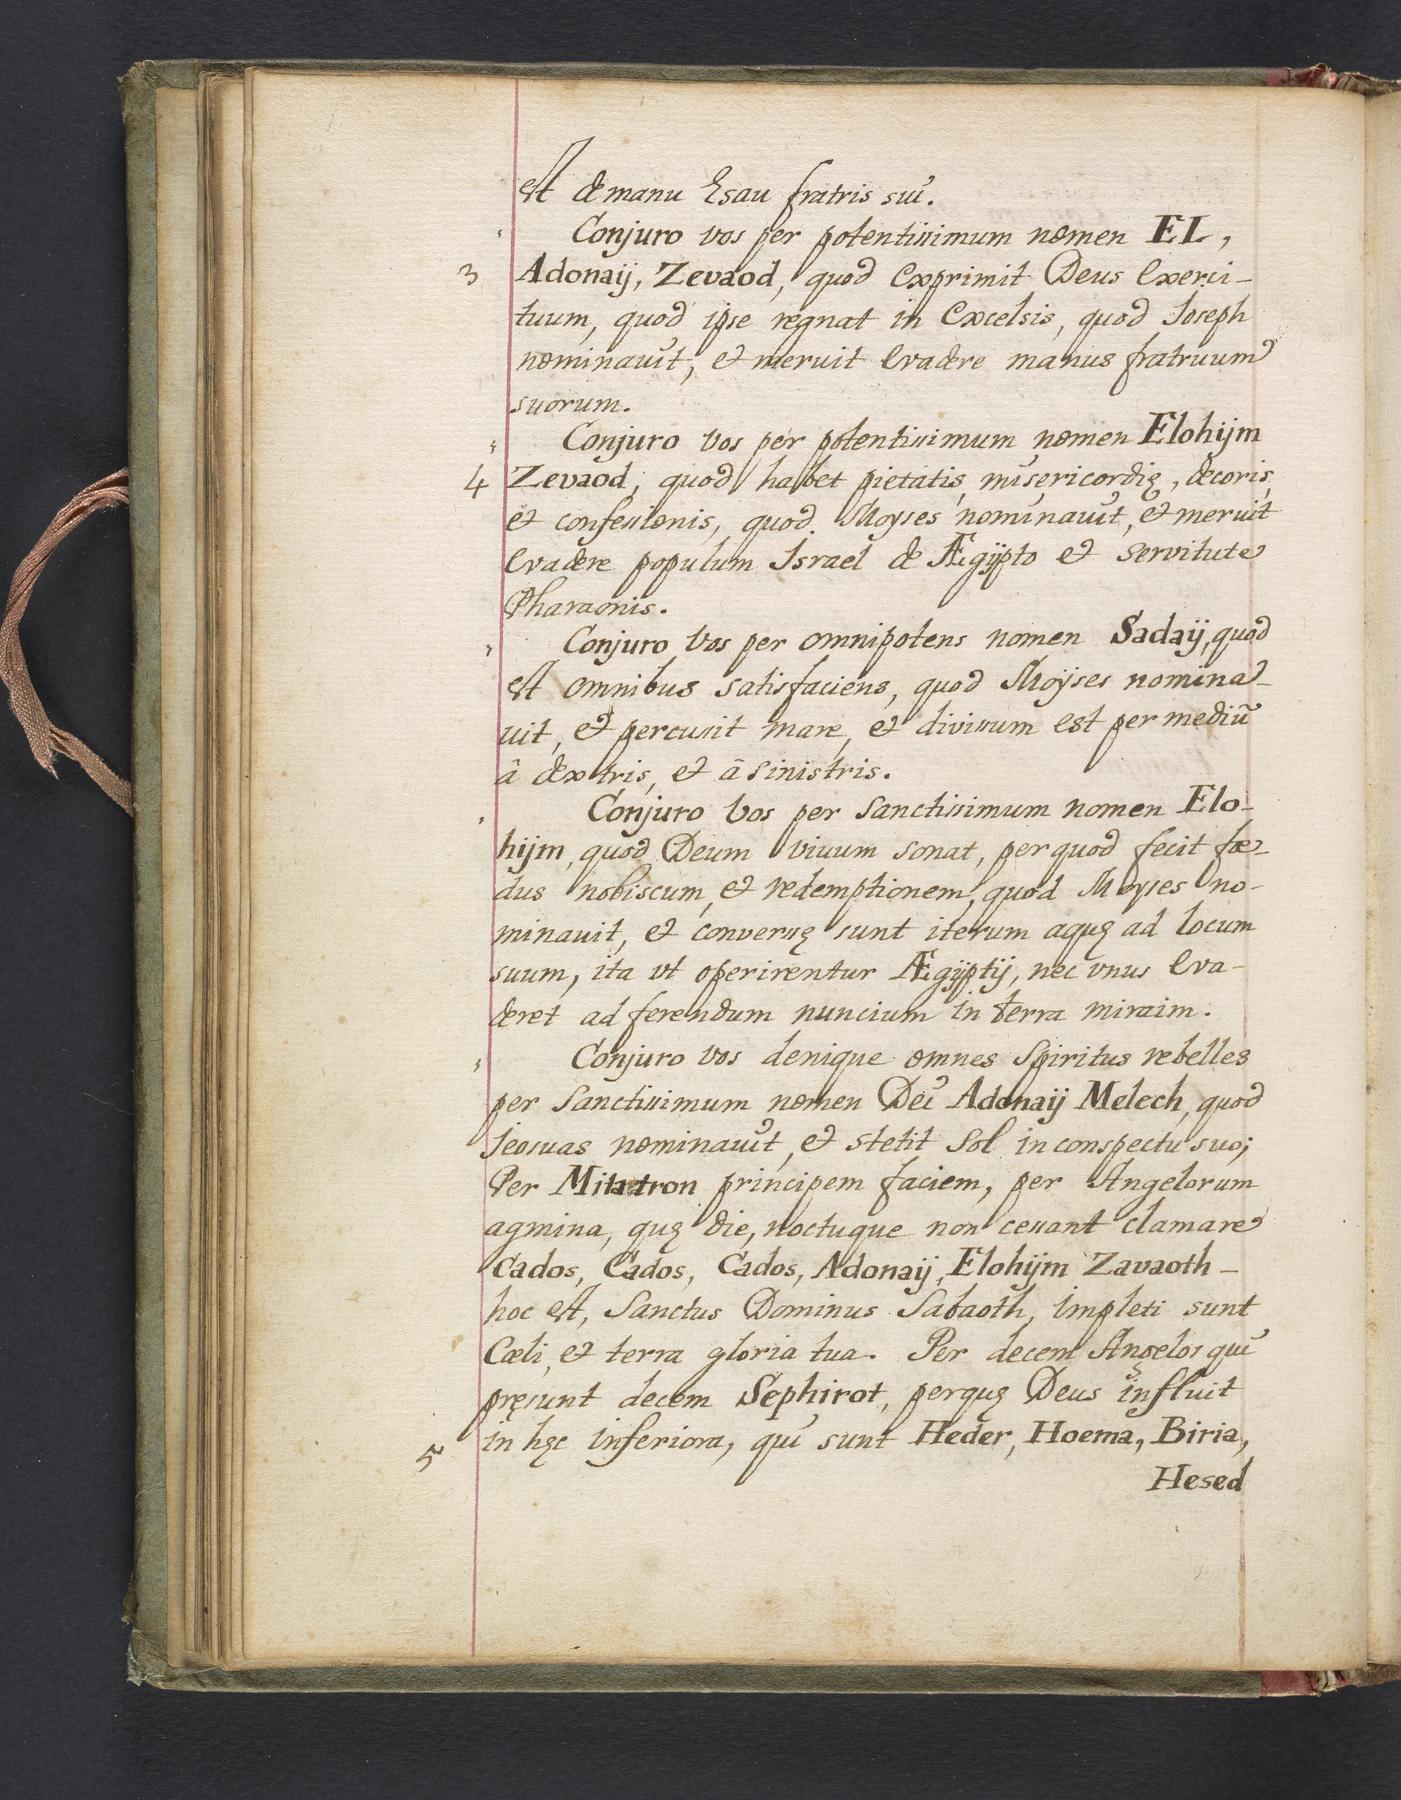 est de manu Esau fratris sui.
Conjuro vos per potentissimum nomen EL,
3 Adonaij, Zevaod, quod exprimit Deus exerci-
tuum, quod ipse regnat in excelsis, quod Joseph
nominauit, et meruit evadere manus fratruum
suorum.
Conjuro vos per potentissimum nomen Elohijm
4 Zevaod, quod habet pietatis, misericordię, decoris,
et confessionis, quod Moyses nominauit, et meruit
evadere populum Israel de Ægijpto et servitute
Pharaonis.
Conjuro vos per omnipotens nomen Sadaij, quod
est omnibus satisfaciens, quod Moÿses nomina-
uit, et percussit mare, et divissum est per mediũ
â dextris, et â sinistris.
Conjuro vos per sanctissimum nomen Elo-
hijm, quod Deum viuum sonat, per quod fecit fœ-
dus nobiscum, et redemptionem, quod Moyses no-
minauit, et conversę sunt iterum aquę ad locum
suum, ita vt operirentur Ægijptij, nec vnus eva-
deret ad ferendum nuncium in terra miraim.
Conjuro vos denique omnes spiritus rebelles
per sanctissimum nomen Dei Adonaij Melech, quod
Jeosuas nominauit, et stetit Sol in conspectu suo;
Per Mitatron principem faciem, per Angelorum
agmina, quę die, noctuque non cessant clamare
Cados, Cados, Cados, Adonaij, Elohijm Zavaoth -
hoc est, Sanctus Dominus Sabaoth, impleti sunt
Cœli, et terra gloria tua. Per decem Angelos qui
pręsunt decem Sephirot, per quę Deus influit
5 in hęc inferiora, qui sunt Heder, Hoema, Biria,
Hesed